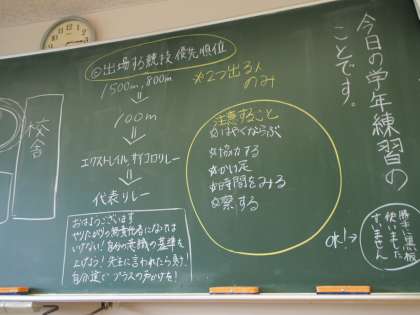 今日の学年練習の
ことです。
◎出場する競技優先順位
1500m, 800m
※2つ出る人
のみ
100m
エクストレイル, サイコロリレー
代表リレー
注意すること
※はやくならぶ
※協力する
※かけ足
※時間をみる
※察する
校舎
おはようございます
やりたがりの無責任者になっては
いけない!自分の意識の基準を
上げよう!先生に言われたら負け!
自分達で プラスの声かけを!
OK!→
勝手に黒板
使いました
すいません